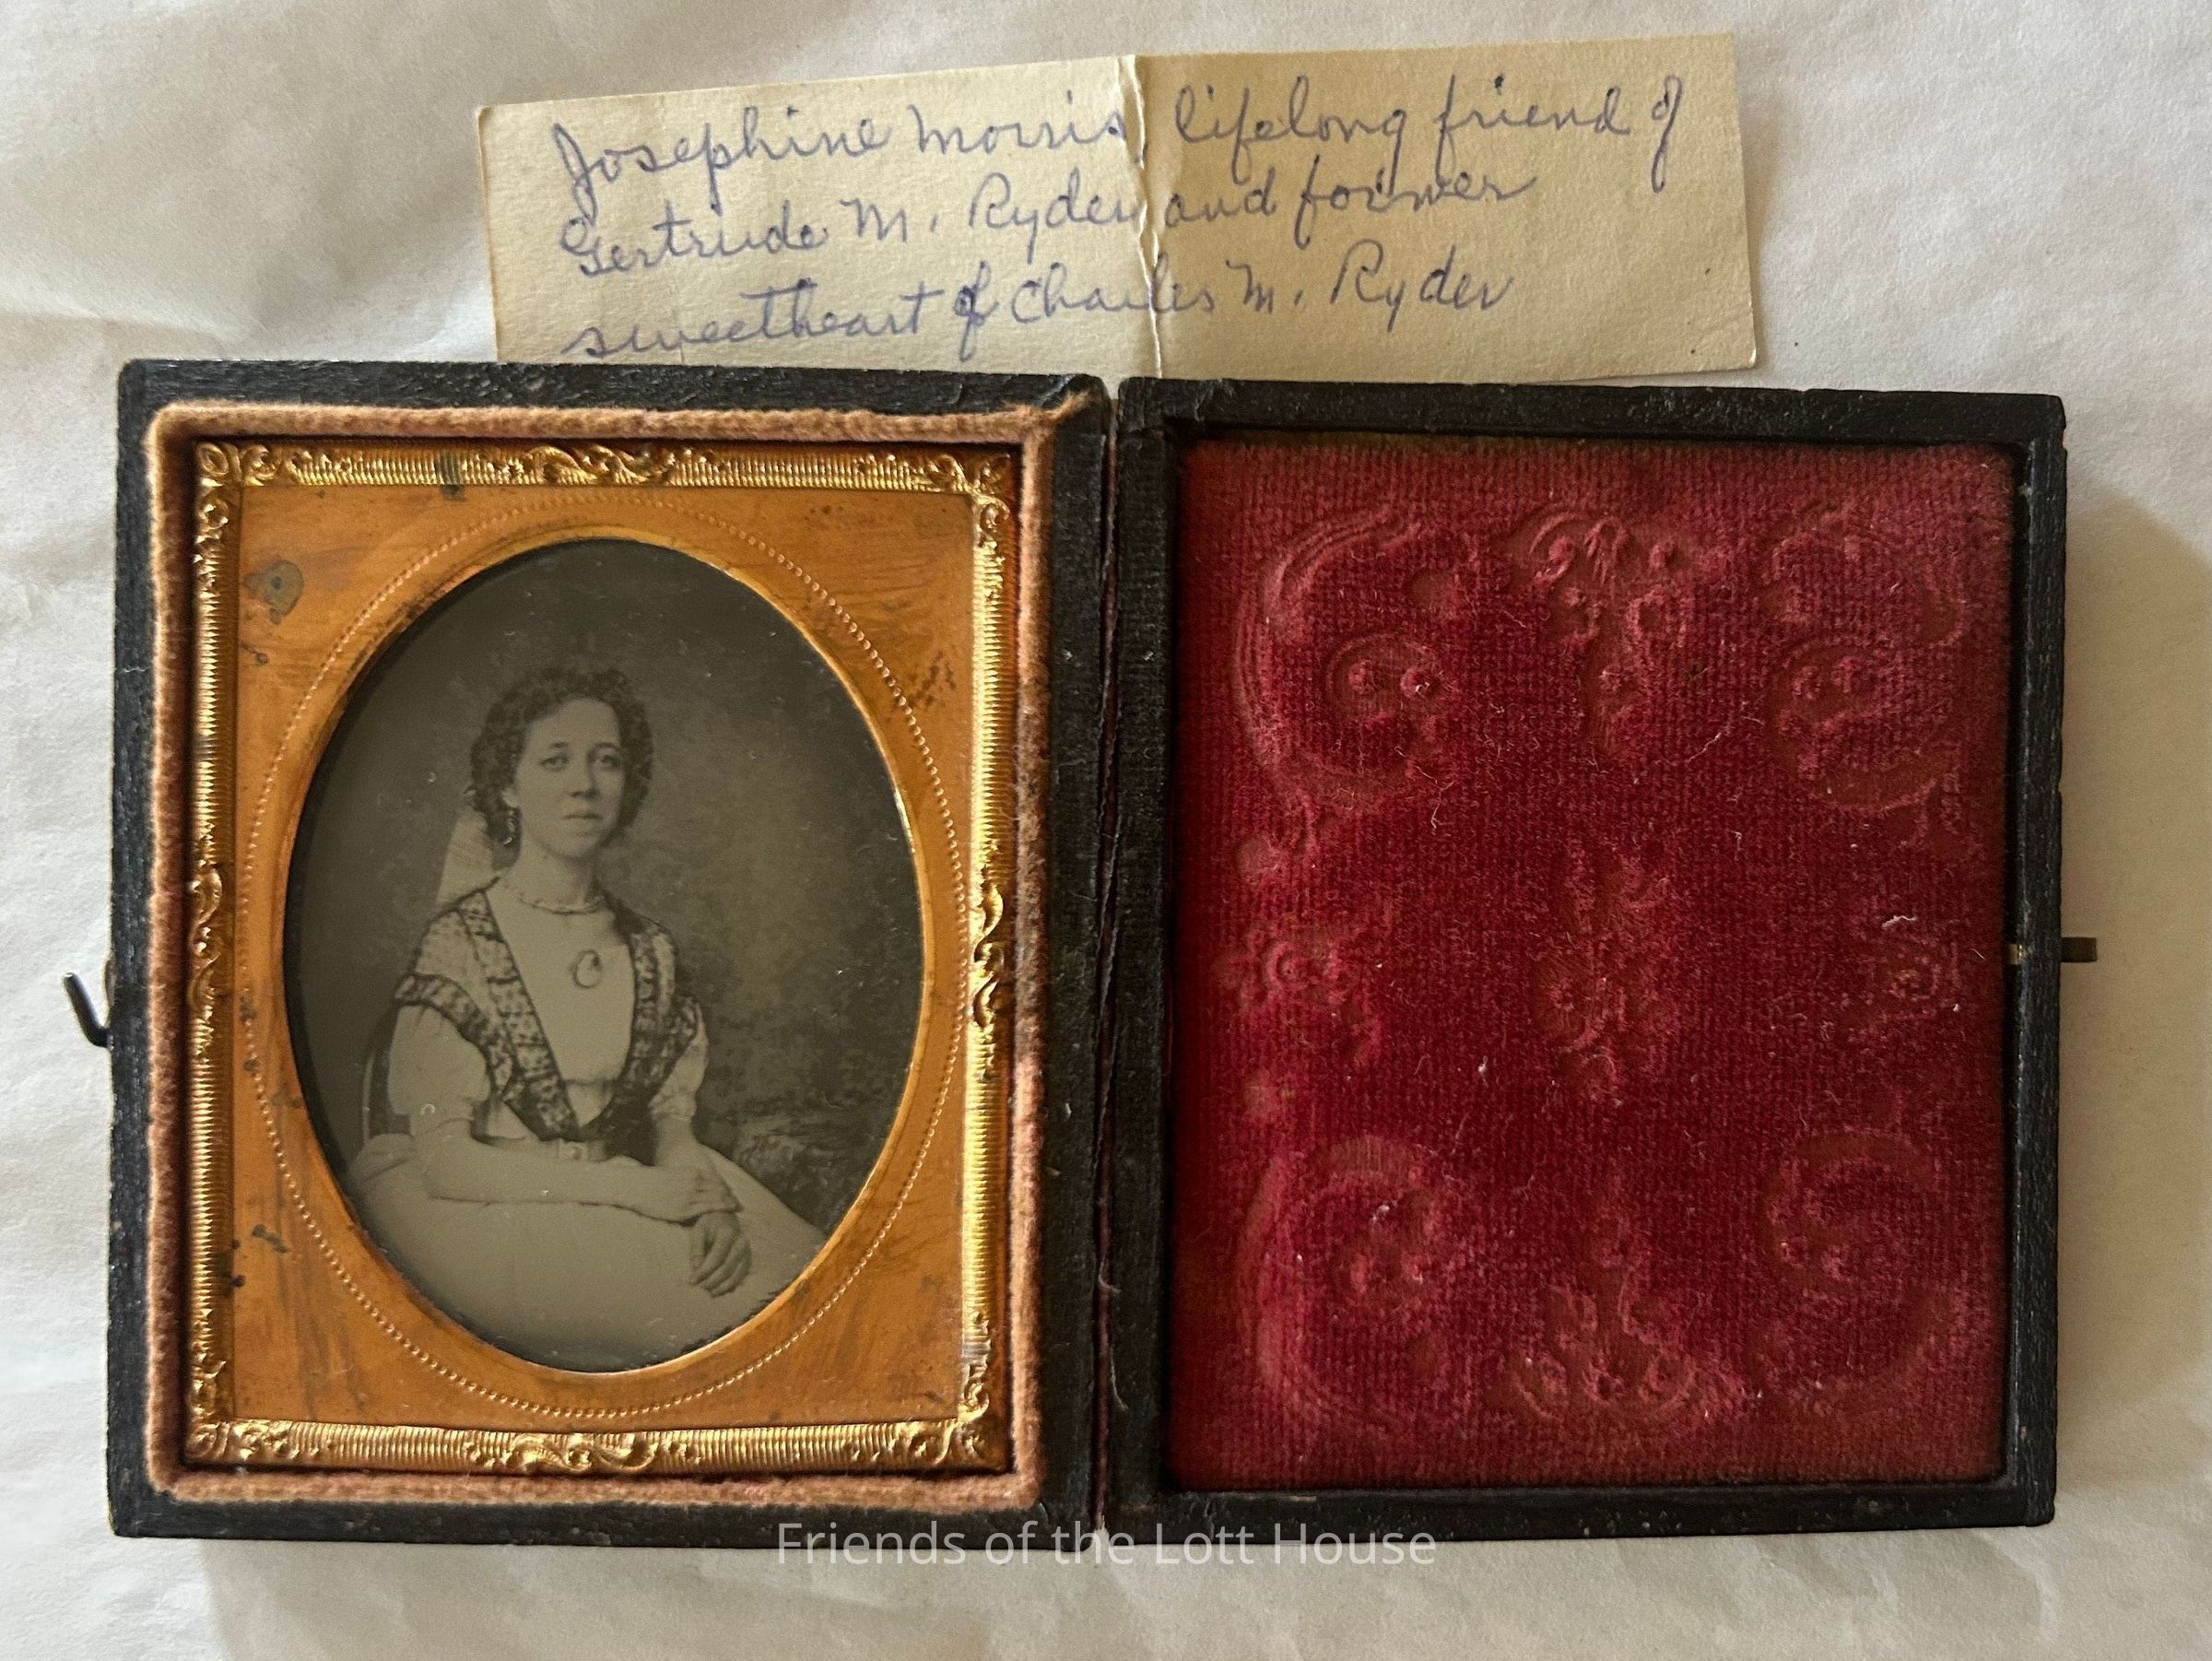 Josephine Morris lifelong friend of
Gertrude M. Ryder and former
sweetheart of Charles M. Ryder
Friends of the Lott House